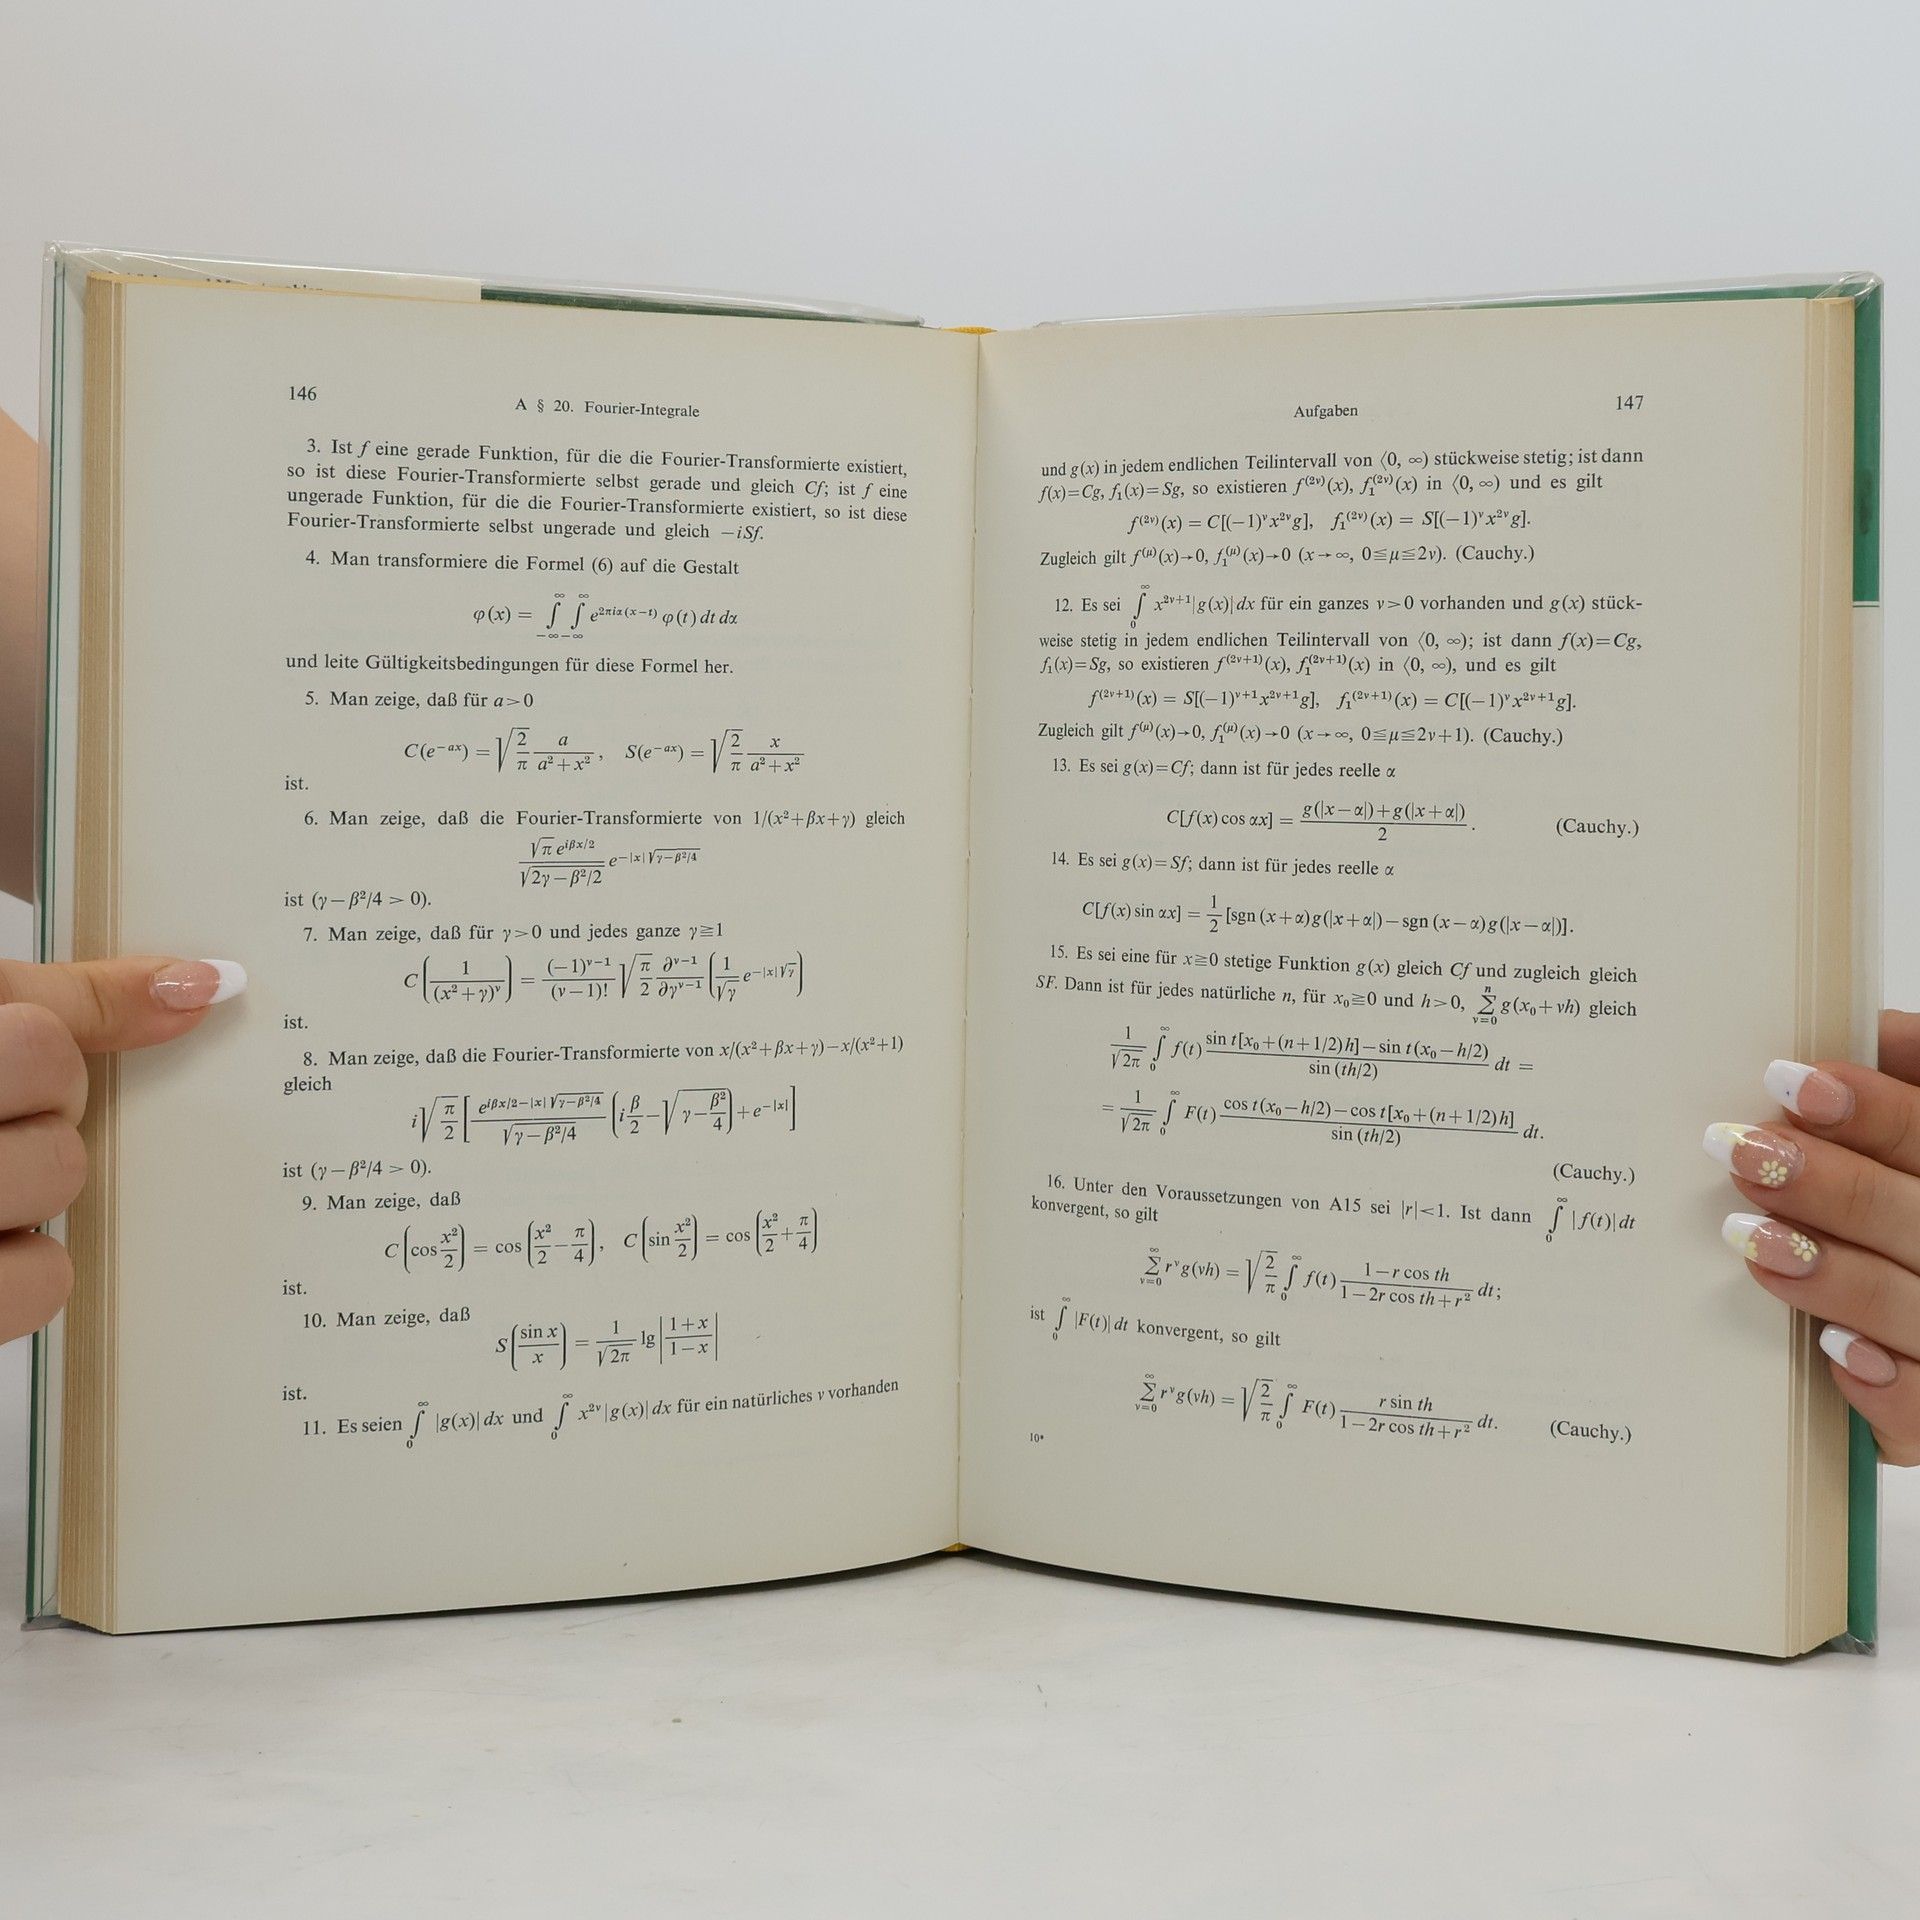 146
A § 20. Fourier-Integrale
3. Ist f eine gerade Funktion, für die die Fourier-Transformierte existiert,
so ist diese Fourier-Transformierte selbst gerade und gleich Cf; ist f eine
ungerade Funktion, für die die Fourier-Transformierte existiert, so ist diese
Fourier-Transformierte selbst ungerade und gleich −iSf.
4. Man transformiere die Formel (6) auf die Gestalt
φ(x) = ∫_{−∞}^{∞} ∫_{−∞}^{∞} e^{2πiα(x−t)} φ(t) dt dα
und leite Gültigkeitsbedingungen für diese Formel her.
5. Man zeige, daß für a>0
C(e^{−ax}) = √(2/π) a/(a²+x²), S(e^{−ax}) = √(2/π) x/(a²+x²)
ist.
6. Man zeige, daß die Fourier-Transformierte von 1/(x²+βx+γ) gleich
(√π e^{iβx/2})/(√(2γ−β²/2)) e^{−|x|√(γ−β²/4)}
ist (γ−β²/4 > 0).
7. Man zeige, daß für γ>0 und jedes ganze γ≧1
C(1/(x²+γ)^ν) = ((−1)^{ν−1})/((ν−1)!) √(π/2) (∂^{ν−1})/(∂γ^{ν−1}) (1/√γ e^{−|x|√γ})
ist.
8. Man zeige, daß die Fourier-Transformierte von x/(x²+βx+γ)−x/(x²+1)
gleich
i√(π/2) [ (e^{iβx/2−|x|√(γ−β²/4)})/(√(γ−β²/4)) (i β/2 − √(γ−β²/4)) + e^{−|x|} ]
ist (γ−β²/4 > 0).
9. Man zeige, daß
C(cos x²/2) = cos(x²/2 − π/4), C(sin x²/2) = cos(x²/2 + π/4)
ist.
10. Man zeige, daß
S(sin x/x) = 1/√(2π) lg |(1+x)/(1−x)|
ist.
11. Es seien ∫_0^∞ |g(x)| dx und ∫_0^∞ x^{2ν} |g(x)| dx für ein natürliches ν vorhanden
Aufgaben
147
und g(x) in jedem endlichen Teilintervall von ⟨0, ∞) stückweise stetig; ist dann
f(x)=Cg, f₁(x)=Sg, so existieren f^{(2ν)}(x), f₁^{(2ν)}(x) in ⟨0, ∞) und es gilt
f^{(2ν)}(x) = C[(−1)^ν x^{2ν} g], f₁^{(2ν)}(x) = S[(−1)^ν x^{2ν} g].
Zugleich gilt f^{(μ)}(x)→0, f₁^{(μ)}(x)→0 (x→∞, 0≦μ≦2ν). (Cauchy.)
12. Es sei ∫_0^∞ x^{2ν+1}|g(x)| dx für ein ganzes ν>0 vorhanden und g(x) stück-
weise stetig in jedem endlichen Teilintervall von ⟨0, ∞); ist dann f(x)=Cg,
f₁(x)=Sg, so existieren f^{(2ν+1)}(x), f₁^{(2ν+1)}(x) in ⟨0, ∞), und es gilt
f^{(2ν+1)}(x) = S[(−1)^{ν+1} x^{2ν+1} g], f₁^{(2ν+1)}(x) = C[(−1)^ν x^{2ν+1} g].
Zugleich gilt f^{(μ)}(x)→0, f₁^{(μ)}(x)→0 (x→∞, 0≦μ≦2ν+1). (Cauchy.)
13. Es sei g(x)=Cf; dann ist für jedes reelle α
C[f(x) cos αx] = (g(|x−α|)+g(|x+α|))/2 . (Cauchy.)
14. Es sei g(x)=Sf; dann ist für jedes reelle α
C[f(x) sin αx] = 1/2 [sgn (x+α)g(|x+α|)−sgn (x−α)g(|x−α|)].
15. Es sei eine für x≧0 stetige Funktion g(x) gleich Cf und zugleich gleich
SF. Dann ist für jedes natürliche n, für x₀≧0 und h>0, ∑_{ν=0}^{n} g(x₀+νh) gleich
1/√(2π) ∫_0^∞ f(t) (sin t[x₀+(n+1/2)h]−sin t(x₀−h/2))/(sin (th/2)) dt =
= 1/√(2π) ∫_0^∞ F(t) (cos t(x₀−h/2)−cos t[x₀+(n+1/2)h])/(sin (th/2)) dt.
(Cauchy.)
16. Unter den Voraussetzungen von A15 sei |r|<1. Ist dann ∫_0^∞ |f(t)| dt
konvergent, so gilt
∑_{ν=0}^{∞} r^ν g(νh) = √(2/π) ∫_0^∞ f(t) (1−r cos th)/(1−2r cos th+r²) dt;
ist ∫_0^∞ |F(t)| dt konvergent, so gilt
∑_{ν=0}^{∞} r^ν g(νh) = √(2/π) ∫_0^∞ F(t) (r sin th)/(1−2r cos th+r²) dt. (Cauchy.)
10*